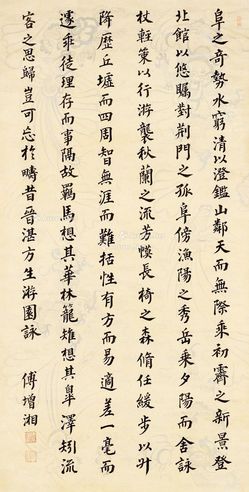 阜之奇勢水窮清以澄鑑山鄰天而無際乘初霽之新景登
北館以悠矚對荆門之孤阜傍漁陽之秀岳乘夕陽而含詠
杖輕策以行游襲秋蘭之流芳幙長椅之森脩任緩步以升
降歷丘墟而四周智無涯而難恬性有方而易適差一毫而
遽乖徒理存而事隔故羈馬想其華林籠雉想其皋澤矧流
客之思歸豈可忘於疇昔晉湛方生游園詠
傅增湘